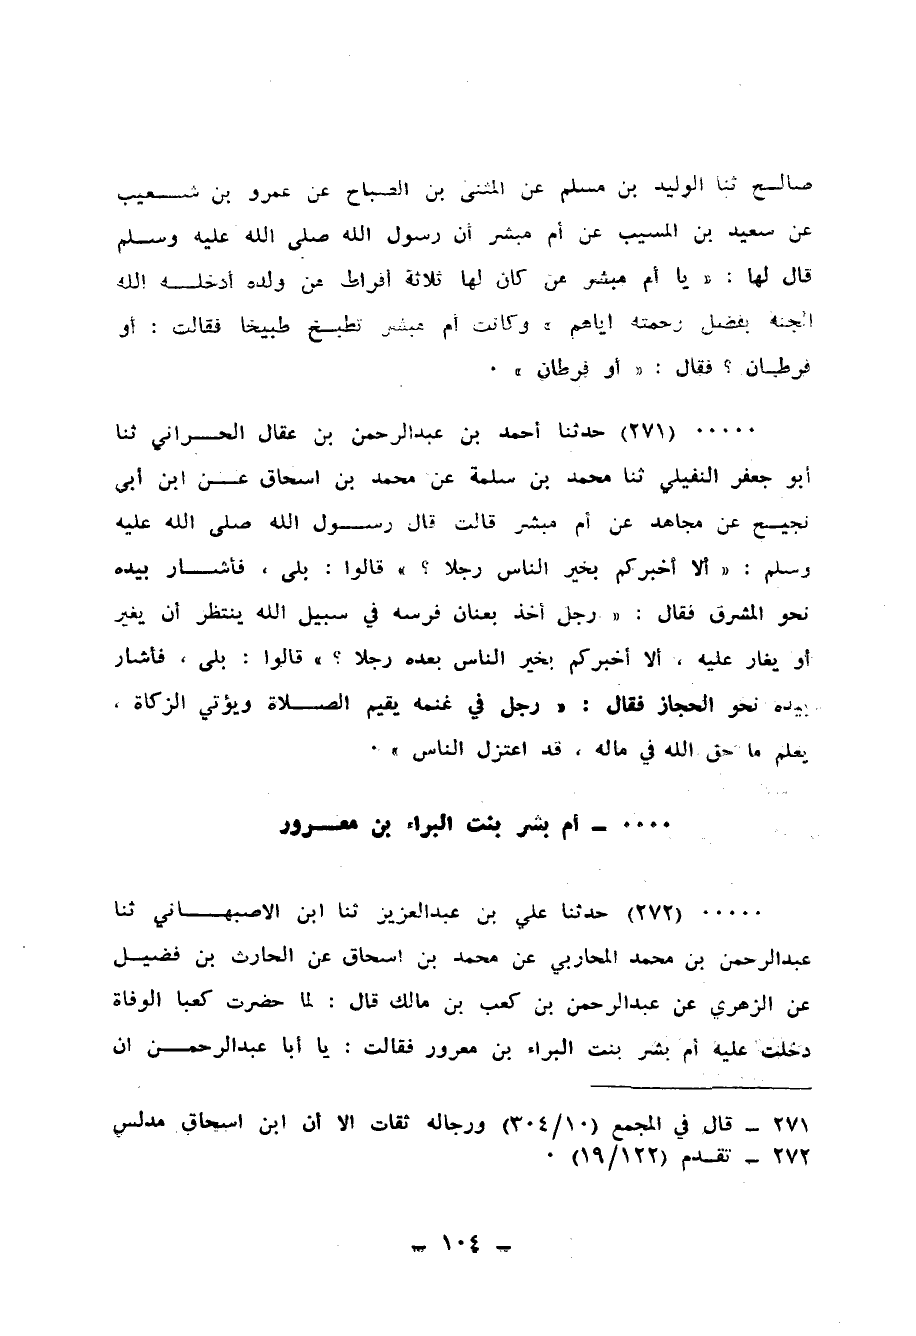 صالح ثنا الوليد بن مسلم عن المثنى بن الصباح عن عمرو بن شعيب
عن سعيد بن المسيب عن أم مبشر أن رسول الله صلى الله عليه وسلم
قال لها : « يا أم مبشر من كان لها ثلاثة أفراط من ولده أدخله الله
الجنة بفضل رحمته اياهم » وكانت أم مبشر تطبخ طبيخا فقالت : أو
فرطان ؟ فقال : « أو فرطان » ٠
٠٠٠٠٠ (٢٧١) حدثنا أحمد بن عبدالرحمن بن عقال الحراني ثنا
أبو جعفر النفيلي ثنا محمد بن سلمة عن محمد بن اسحاق عن ابن أبي
نجيح عن مجاهد عن أم مبشر قالت قال رسول الله صلى الله عليه
وسلم : « ألا أخبركم بخير الناس رجلا ؟ » قالوا : بلى ، فأشار بيده
نحو المشرق فقال : « رجل أخذ بعنان فرسه في سبيل الله ينتظر أن يغير
أو يغار عليه ، ألا أخبركم بخير الناس بعده رجلا ؟ » قالوا : بلى ، فأشار
بيده نحو الحجاز فقال : « رجل في غنمه يقيم الصلاة ويؤتي الزكاة ،
يعلم ما حق الله في ماله ، قد اعتزل الناس » ٠
٠٠٠٠ ــ أم بشر بنت البراء بن معرور
٠٠٠٠٠ (٢٧٢) حدثنا علي بن عبدالعزيز ثنا ابن الاصبهاني ثنا
عبدالرحمن بن محمد المحاربي عن محمد بن اسحاق عن الحارث بن فضيل
عن الزهري عن عبدالرحمن بن كعب بن مالك قال : لما حضرت كعبا الوفاة
دخلت عليه أم بشر بنت البراء بن معرور فقالت : يا أبا عبدالرحمن ان
٢٧١ ــ قال في المجمع (٣٠٤/١٠) ورجاله ثقات الا أن ابن اسحاق مدلس
٢٧٢ ــ تقدم (١٩/١٢٢) ٠
ــ ١٠٤ ــ